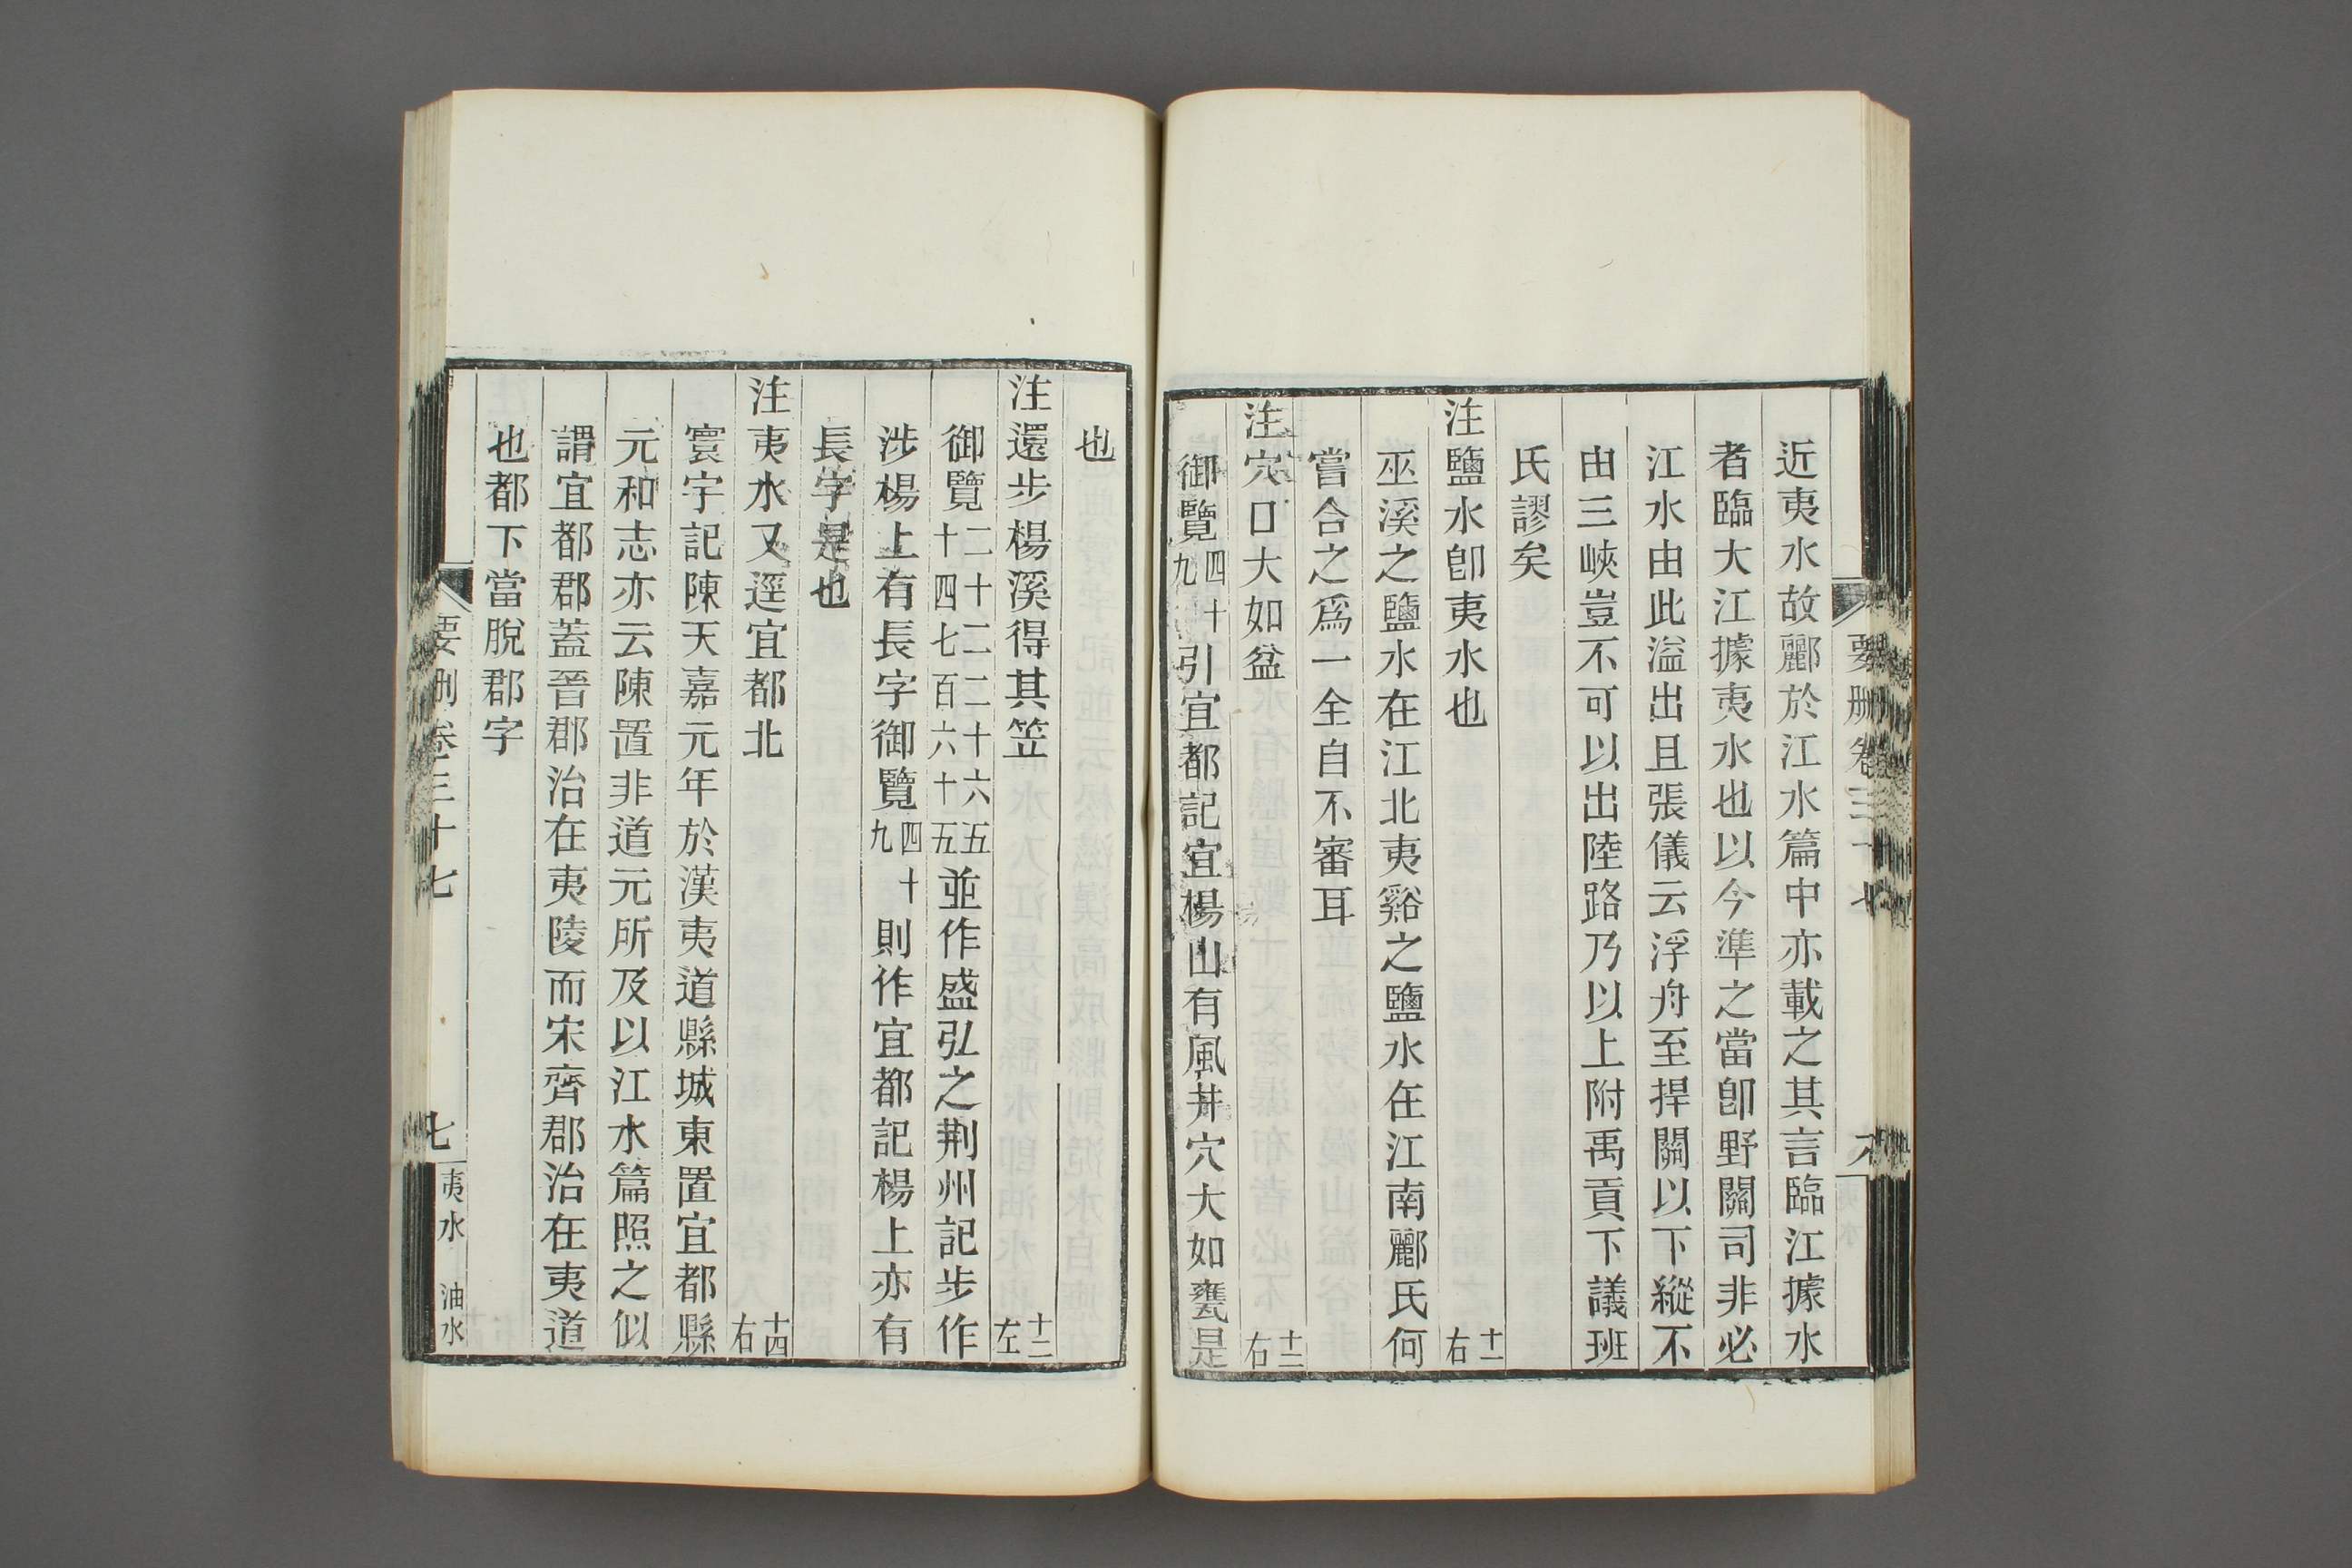 近夷水故酈於江水篇中亦載之其言臨江據水
者臨大江據夷水也以今準之當卽野關司非必
江水由此溢出且張儀云浮舟至捍關以下縱不
由三峽豈不可以出陸路乃以上附禹貢下議班
氏謬矣
注鹽水卽夷水也 十一右
巫溪之鹽水在江北夷谿之鹽水在江南酈氏何
嘗合之爲一全自不審耳
注穴口大如盆 十二右
御覽四十九引宜都記宜楊山有風井穴大如甕是
要刪卷三十七
六
夷水
也
注還步楊溪得其笠 十二左
御覽二十二二十六五十四七百六十五並作盛弘之荆州記步作
涉楊上有長字御覽四十九則作宜都記楊上亦有
長字是也
注夷水又逕宜都北 十四右
寰宇記陳天嘉元年於漢夷道縣城東置宜都縣
元和志亦云陳置非道元所及以江水篇照之似
謂宜都郡蓋晉郡治在夷陵而宋齊郡治在夷道
也都下當脫郡字
要刪卷三十七
七
夷水 油水